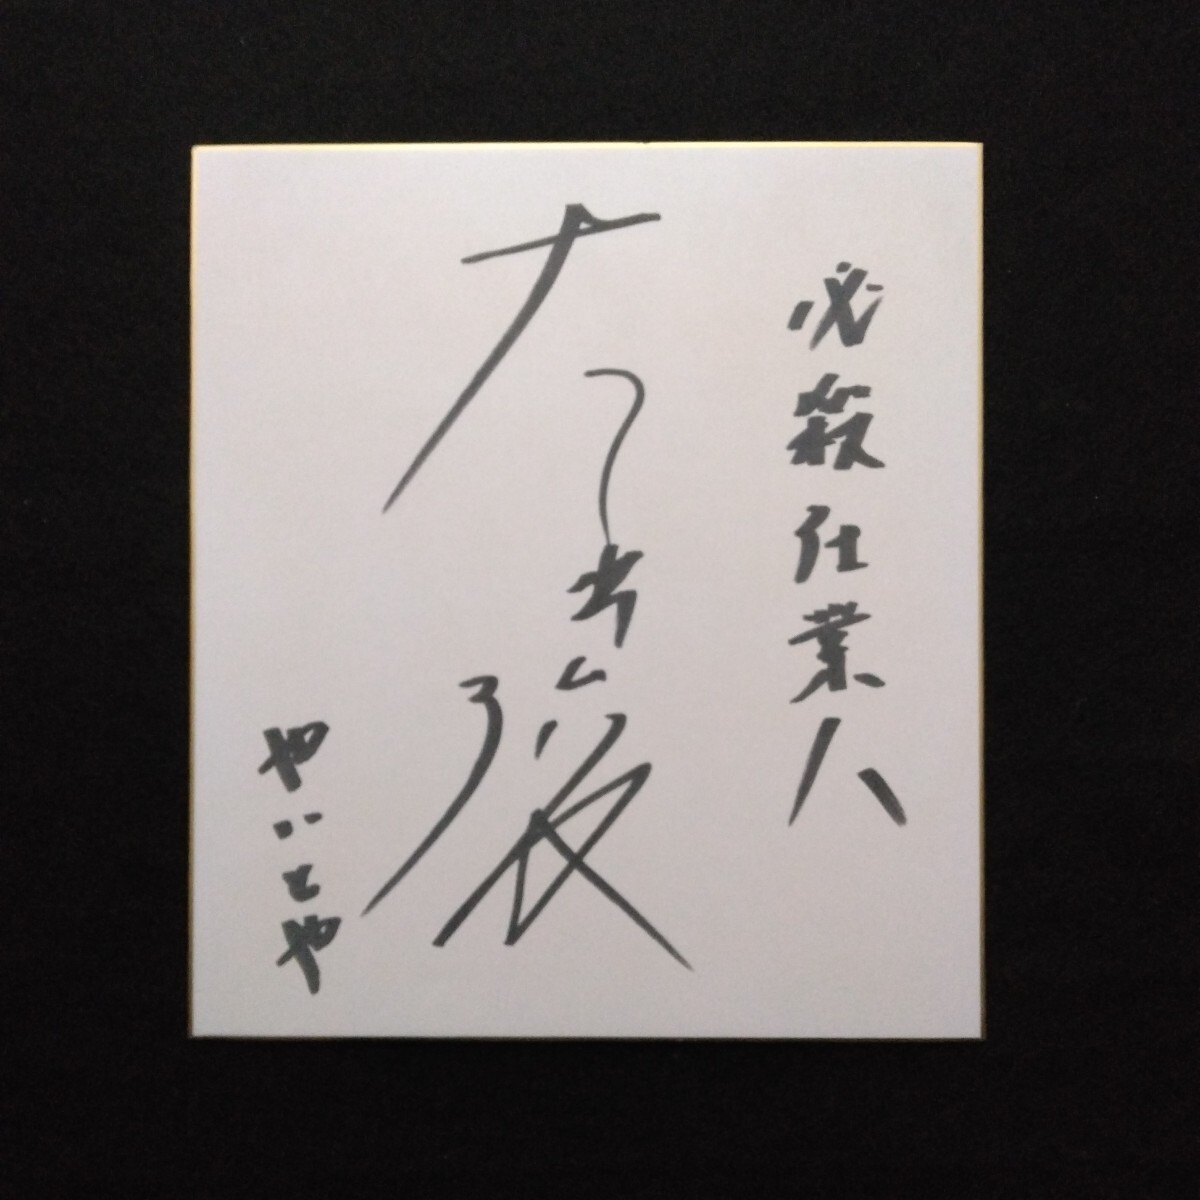 必殺仕業人
大出俊
やいとや